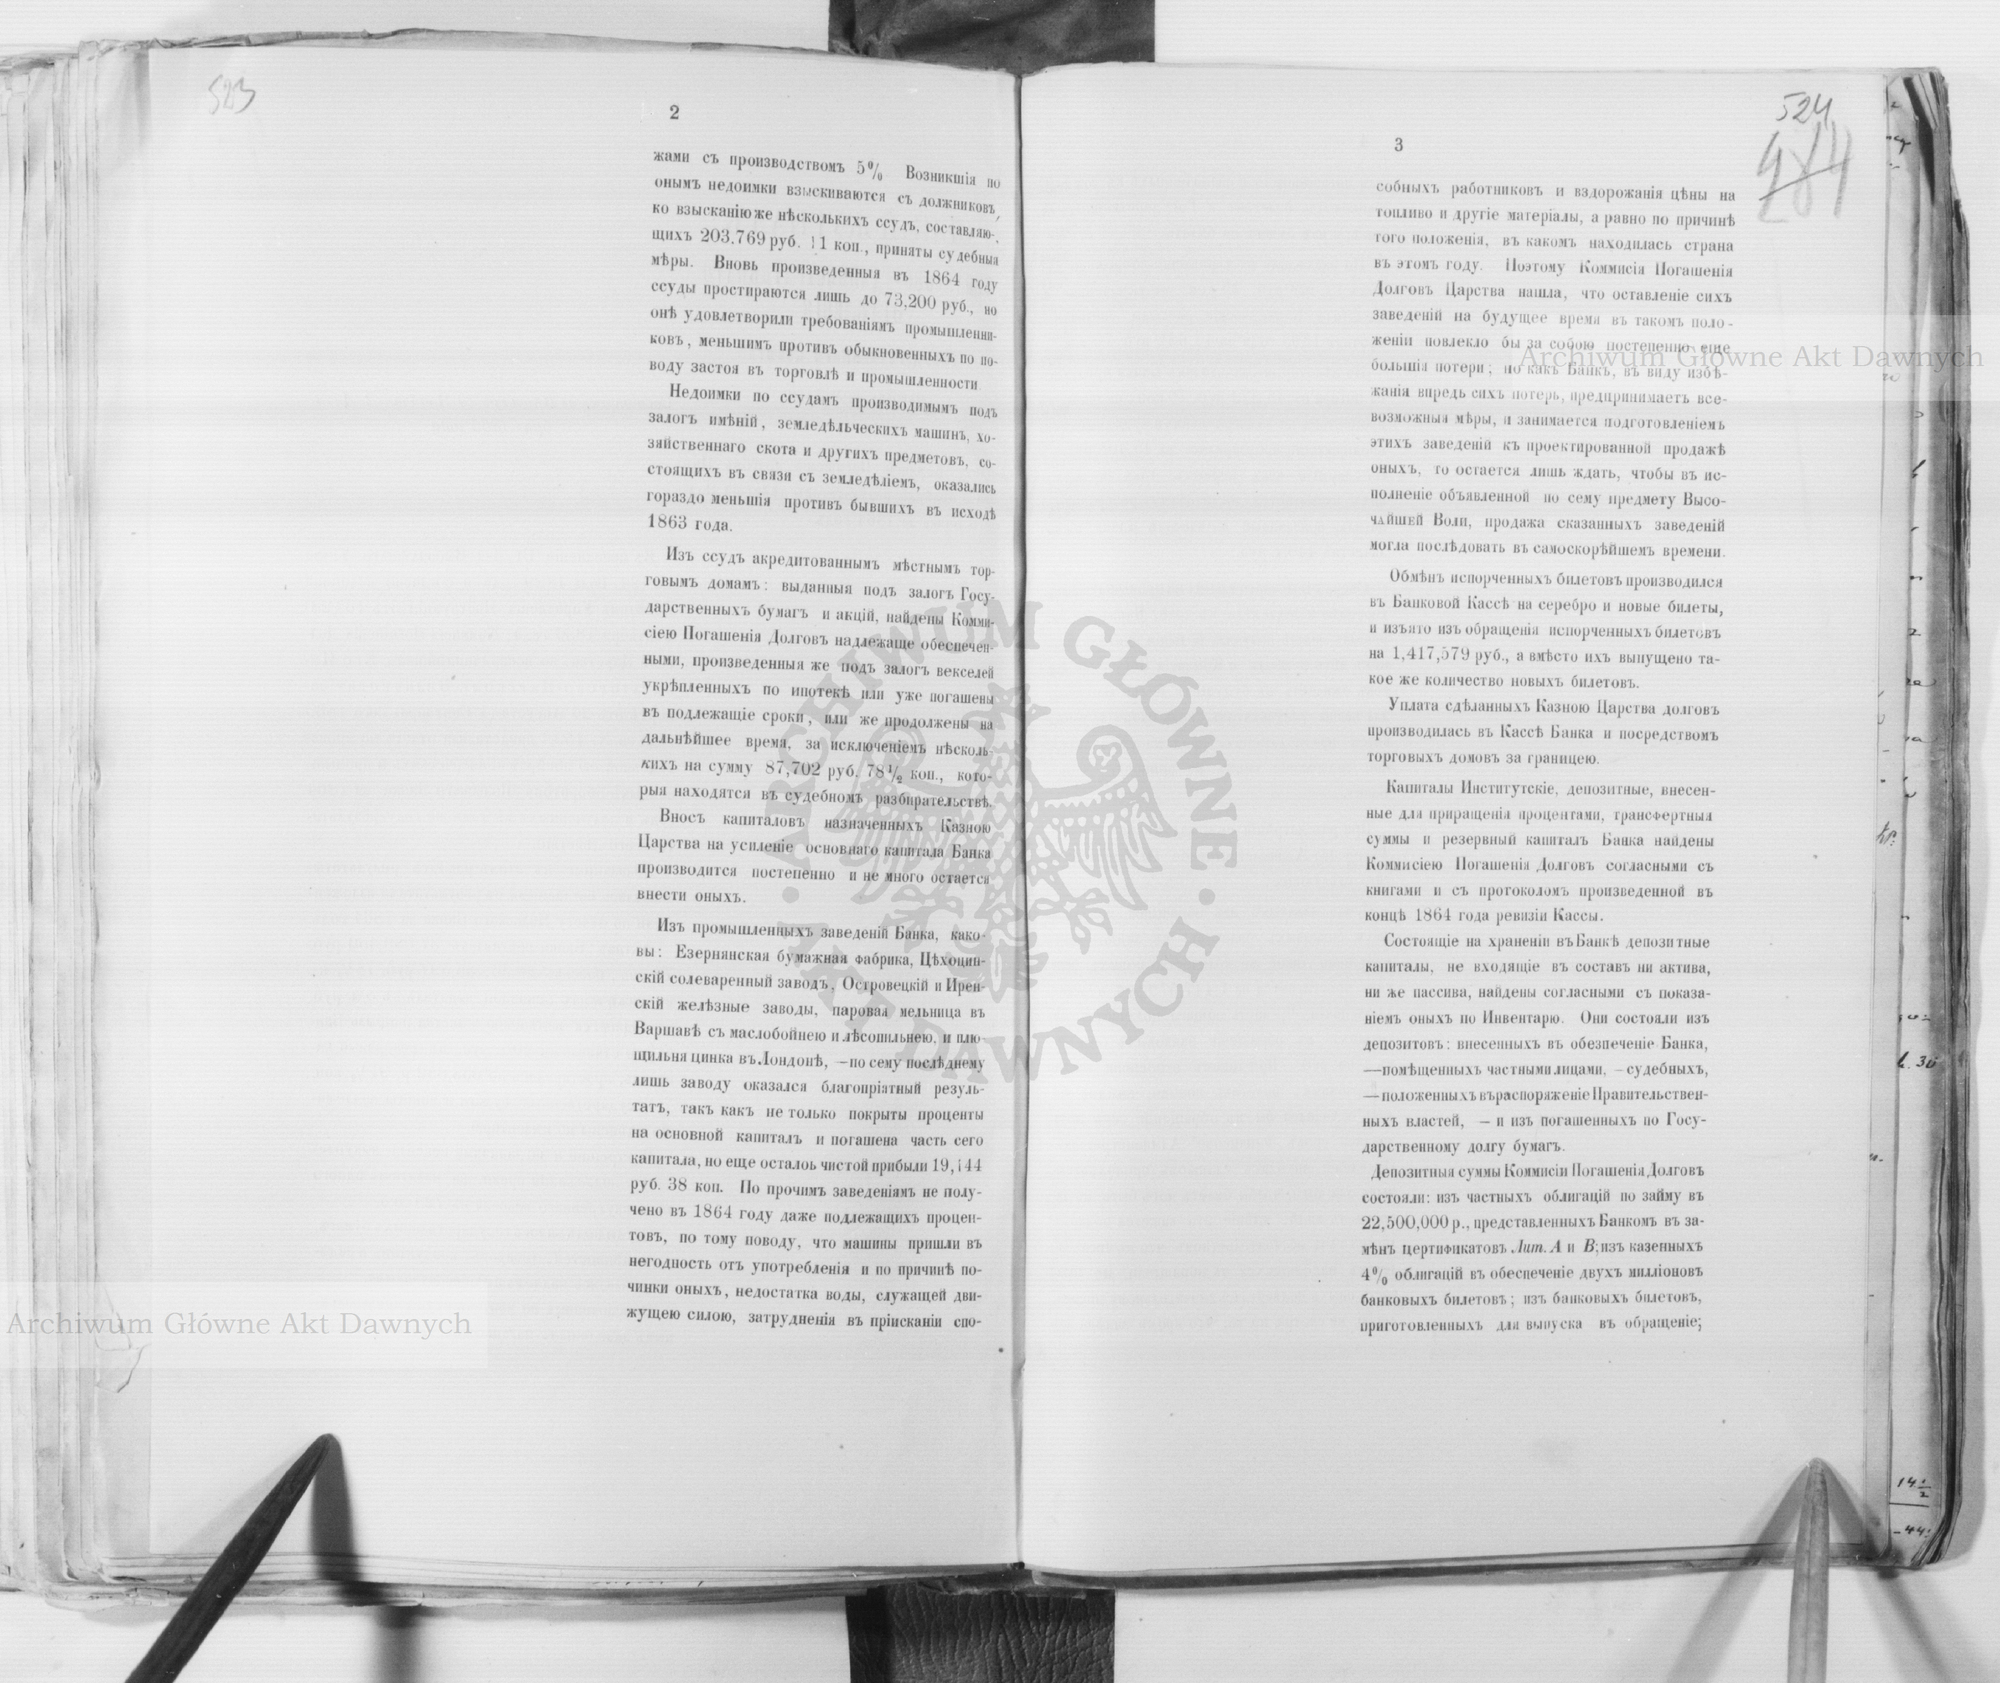 523
2
жами съ производствомъ 5% Возникшія по
онымъ недоимки взыскиваются съ должниковъ,
ко взысканію же нѣсколькихъ ссудъ, составляю-
щихъ 203,769 руб. 11 коп., приняты судебныя
мѣры. Вновь произведенныя въ 1864 году
ссуды простираются лишь до 73,200 руб., но
онѣ удовлетворили требованіямъ промышленни-
ковъ, меньшимъ противъ обыкновенныхъ по по-
воду застоя въ торговлѣ и промышленности
Недоимки по ссудамъ производимымъ подъ
залогъ имѣній, земледѣльческихъ машинъ, хо-
зяйственнаго скота и другихъ предметовъ, со-
стоящихъ въ связи съ земледѣліемъ, оказались
гораздо меньшія противъ бывшихъ въ исходѣ
1863 года.
Изъ ссудъ акредитованнымъ мѣстнымъ тор-
говымъ домамъ: выданныя подъ залогъ Госу-
дарственныхъ бумагъ и акцій, найдены Комми-
сіею Погашенія Долговъ надлежаще обеспечен-
ными, произведенныя же подъ залогъ векселей
укрѣпленныхъ по ипотекѣ или уже погашены
въ подлежащіе сроки, или же продолжены на
дальнѣйшее время, за исключеніемъ нѣсколь-
кихъ на сумму 87,702 руб. 78½ коп., кото-
рыя находятся въ судебномъ разбирательствѣ.
Вносъ капиталовъ назначенныхъ Казною
Царства на усиленіе основнаго капитала Банка
производится постепенно и не много остается
внести оныхъ.
Изъ промышленныхъ заведеній Банка, како-
вы: Езернянская бумажная фабрика, Цѣхоцин-
скій солеваренный заводъ, Островецкій и Ирен-
скій желѣзные заводы, паровая мельница въ
Варшавѣ съ маслобойнею и лѣсопильнею, и плю-
щильня цинка въ Лондонѣ, —по сему послѣднему
лишь заводу оказался благопріатный резуль-
татъ, такъ какъ не только покрыты проценты
на основной капиталъ и погашена часть сего
капитала, но еще осталоь чистой прибыли 19,144
руб. 38 коп. По прочимъ заведеніямъ не полу-
чено въ 1864 году даже подлежащихъ процен-
товъ, по тому поводу, что машины пришли въ
негодность отъ употребленія и по причинѣ по-
чинки оныхъ, недостатка воды, служащей дви-
жущею силою, затрудненія въ пріисканіи спо-
524
284
3
собныхъ работниковъ и вздорожанія цѣны на
топливо и другіе матеріалы, а равно по причинѣ
того положенія, въ какомъ находилась страна
въ этомъ году. Поэтому Коммисія Погашенія
Долговъ Царства нашла, что оставленіе сихъ
заведеній на будущее время въ такомъ поло-
женіи повлекло бы за собою постепенно еще
большія потери; но какъ Банкъ, въ виду избѣ-
жанія впредь сихъ потерь, предпринимаетъ все-
возможныя мѣры, и занимается подготовленіемъ
этихъ заведеній къ проектированной продажѣ
оныхъ, то остается лишь ждать, чтобы въ ис-
полненіе объявленной по сему предмету Высо-
чАйшей Воли, продажа сказанныхъ заведеній
могла послѣдовать въ самоскорѣйшемъ времени.
Обмѣнъ испорченныхъ билетовъ производился
въ Банковой Кассѣ на серебро и новые билеты,
и изъято изъ обращенія испорченныхъ билетовъ
на 1,417,579 руб., а вмѣсто ихъ выпущено та-
кое же количество новыхъ билетовъ.
Уплата сдѣланныхъ Казною Царства долговъ
производилась въ Кассѣ Банка и посредствомъ
торговыхъ домовъ за границею.
Капиталы Институтскіе, депозитные, внесен-
ные для приращенія процентами, трансфертныя
суммы и резервный капиталъ Банка найдены
Коммисіею Погашенія Долговъ согласными съ
книгами и съ протоколомъ произведенной въ
концѣ 1864 года ревизіи Кассы.
Состоящіе на храненіи въ Банкѣ депозитные
капиталы, не входящіе въ составъ ни актива,
ни же пассива, найдены согласными съ показа-
ніемъ оныхъ по Инвентарю. Они состояли изъ
депозитовъ: внесенныхъ въ обезпеченіе Банка,
—помѣщенныхъ частными лицами, —судебныхъ,
—положенныхъ въ распоряженіе Правительствен-
ныхъ властей, — и изъ погашенныхъ по Госу-
дарственному долгу бумагъ.
Депозитныя суммы Коммисіи Погашенія Долговъ
состояли: изъ частныхъ облигацій по займу въ
22,500,000 р., представленныхъ Банкомъ въ за-
мѣнъ цертификатовъ Лит. А и В; изъ казенныхъ
4% облигацій въ обеспеченіе двухъ милліоновъ
банковыхъ билетовъ; изъ банковыхъ билетовъ,
приготовленныхъ для выпуска въ обращеніе;
Archiwum Główne Akt Dawnych
ARCHIWUM GŁÓWNE
AKT DAWNYCH
Archiwum Główne Akt Dawnych